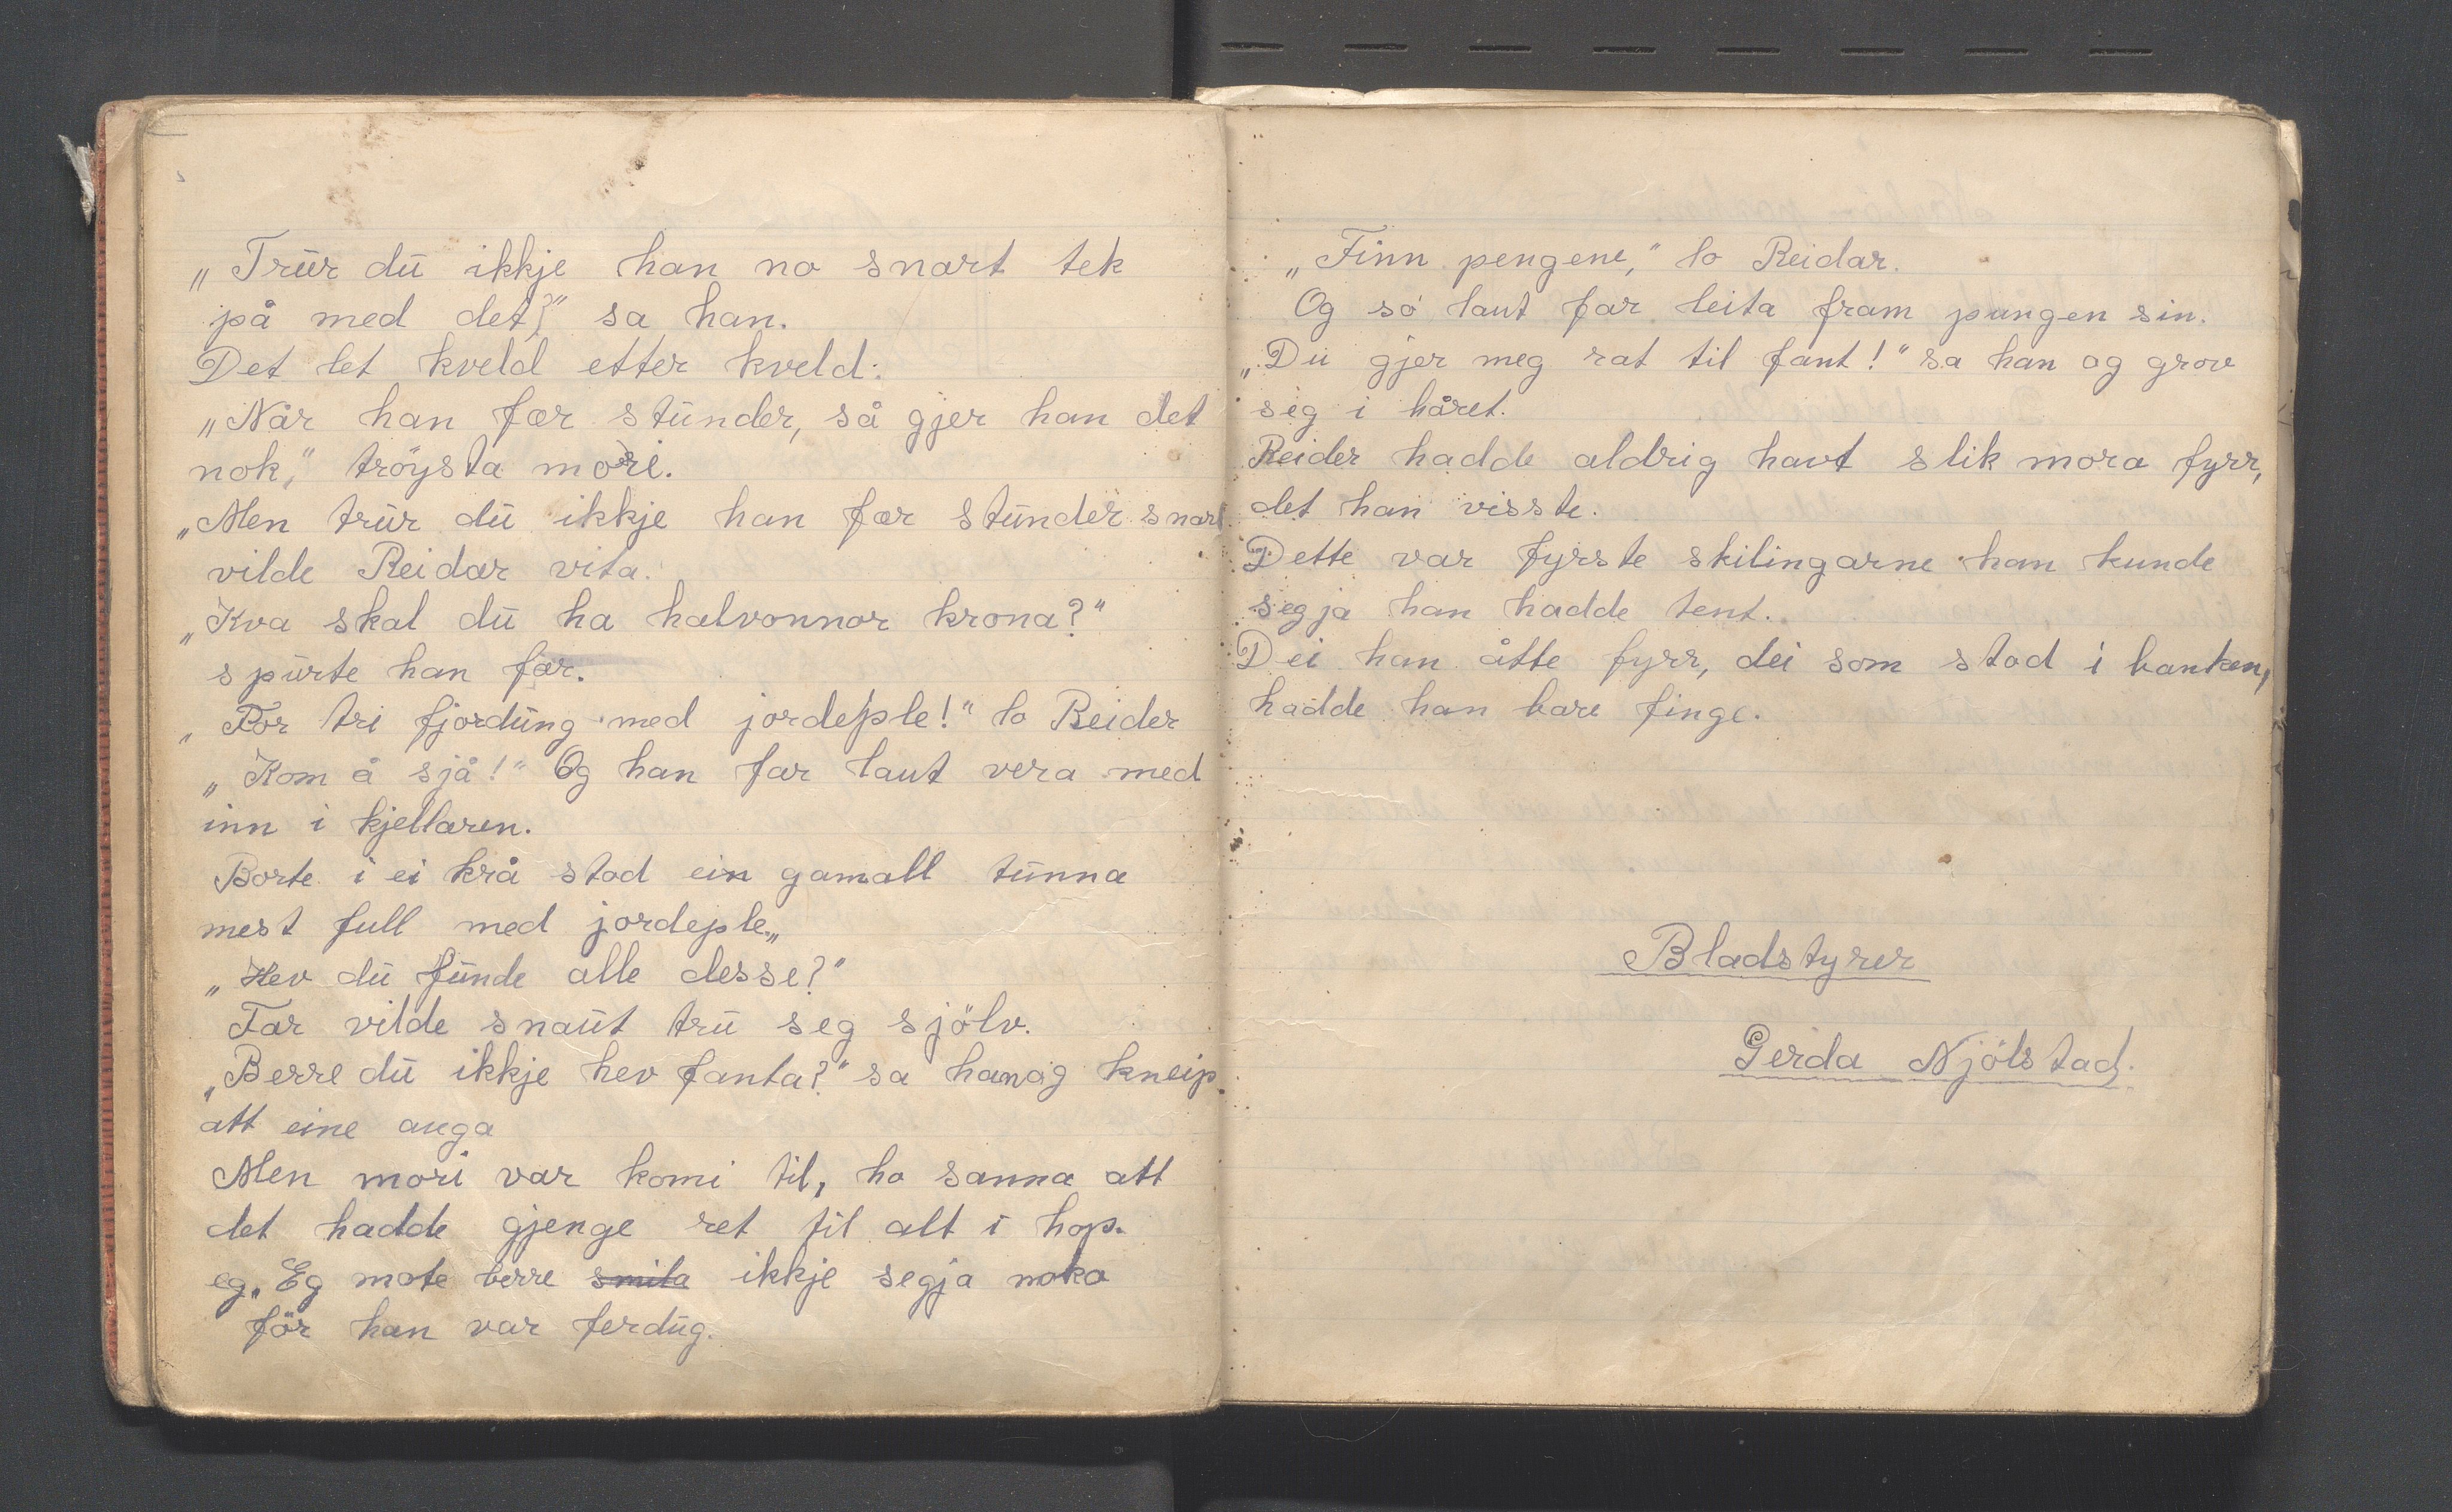 „Trur du ikkje han no snart tek
på med det?" sa han.
Det let kveld etter kveld.
„Når han fær stunder, så gjer han det
nok," tröysta mori.
„Men trur du ikkje han fær stunder snart
vilde Reidar vita.
„Kva skal du ha halvonnor krona?"
spurte han far.
„For tri fjordung med jordeple!" lo Reider
„Kom å sjå!" Og han far laut vera med
inn i kjellaren.
Borte i ei krå stod ein gamall tunna
mest full med jordeple„
„Hev du funde alle desse?"
Far vilde snaut tru seg sjölv.
„Berre du ikkje hev fanta?" sa han og kneip
att eine auga
Men mori var komi til, ho sanna att
det hadde gjenge ret til alt i hop.
eg„ Eg mote berre smila ikkje segja noko
för han var ferdug.
„Finn pengene," lo Reidar.
Og so laut far leita fram pungen sin.
„Du gjer meg rat til fant!" sa han og grov
seg i håret.
Reider hadde aldrig havt slik mora fyrr,
det han visste.
Dette var fyrste skilingarne han kunde
segja han hadde tent.
Dei han åtte fyrr, dei som stod i banken,
hadde han bare finge.
Bladstyrer
Gerda Njölstad.